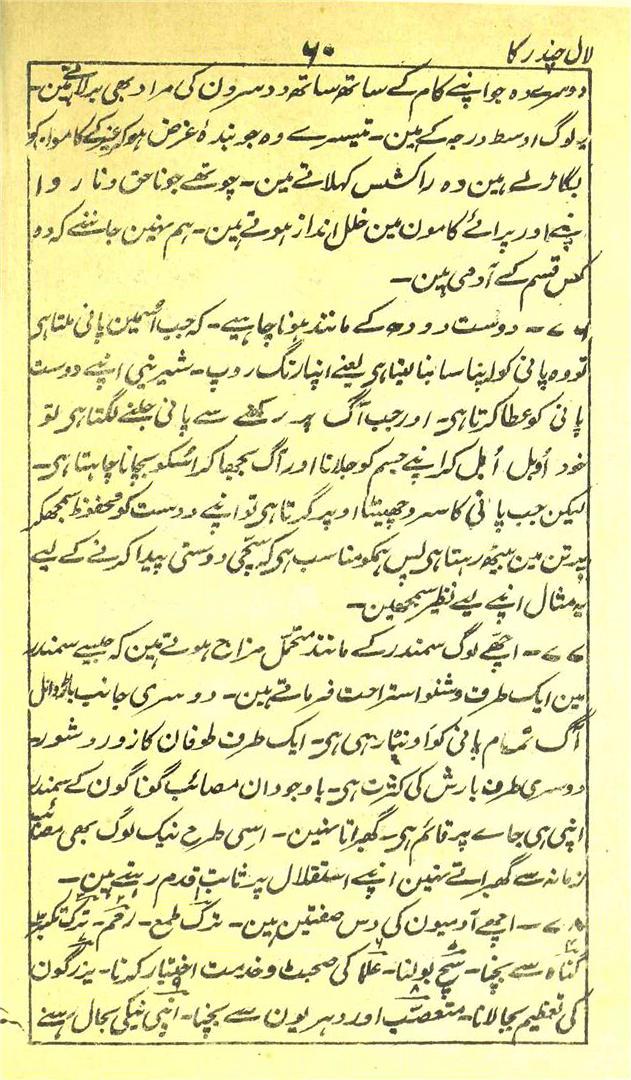 لال چندرکا
۶۰
دوسرے وہ جو اپنے کام کے ساتھ ساتھ دوسرون کی مراد بھی برلاتے ہین۔
یہ لوگ اوسط درجہ کے ہین۔ تیسرے وہ جو بندۂ غرض ہوکر غیر کے کامون کو
بگاڑتے ہین وہ راکشس کہلاتے ہین۔ چوتھے جو ناحق و ناروا
اپنے اور پرائے کامون مین خلل انداز ہوتے ہین۔ ہم نہین جانتے کہ وہ
کس قسم کے آدمی ہین۔
۷۶۔ دوست دودھ کے مانند ہونا چاہیے۔ کہ جب اُسمین پانی ملتا ہی
تو وہ پانی کو اپنا سا بنا لیتا ہی یعنے اپنا رنگ روپ۔ شیرینی اپنے دوست
پانی کو عطا کرتا ہی۔ اور جب آگ پر رکھنے سے پانی جلنے لگتا ہی تو
خود اُوبل اُبل کر اپنے جسم کو جلانا اور آگ بجھا کر اُسکو بچانا چاہتا ہی۔
لیکن جب پانی کا سرد چھینٹا اوپر گرتا ہی تو اپنے دوست کو محفوظ سمجھکر
پھر تن مین بیٹھ رہتا ہی پس ہمکو مناسب ہی کہ سچی دوستی پیدا کرنے کے لیے
یہ مثال اپنے لیے نظیر سمجھین۔
۷۷۔ اچھے لوگ سمندر کے مانند متحمل مزاج ہوتے ہین کہ جیسے سمندر
مین ایک طرف وشنو استراحت فرماتے ہین۔ دوسری جانب باڑوانل
آگ تمام پانی کو اَونٹا رہی ہی۔ ایک طرف طوفان کا زور و شور۔
دوسری طرف بارش کی کثرت ہی۔ باوجود ان مصائب گوناگون کے سمندر
اپنی ہی جاے پر قائم ہی۔ گھبراتا نہین۔ اسی طرح نیک لوگ بھی مصائب
زمانہ سے گھبراتے نہین اپنے استقلال پر ثابت قدم رہتے ہین۔
۷۸۔ اچھے آدمیون کی دس صفتین ہین۔ ترک طمع۔ رحم۔ ترک تکبر۔
گناہ سے بچنا۔ سچ بولنا۔ علما کی صحبت و خدمت اختیار کرنا۔ بزرگون
کی تعظیم بجالانا۔ متعصب اور دہریون سے بچنا۔ اپنی نیکی بحال رہنے